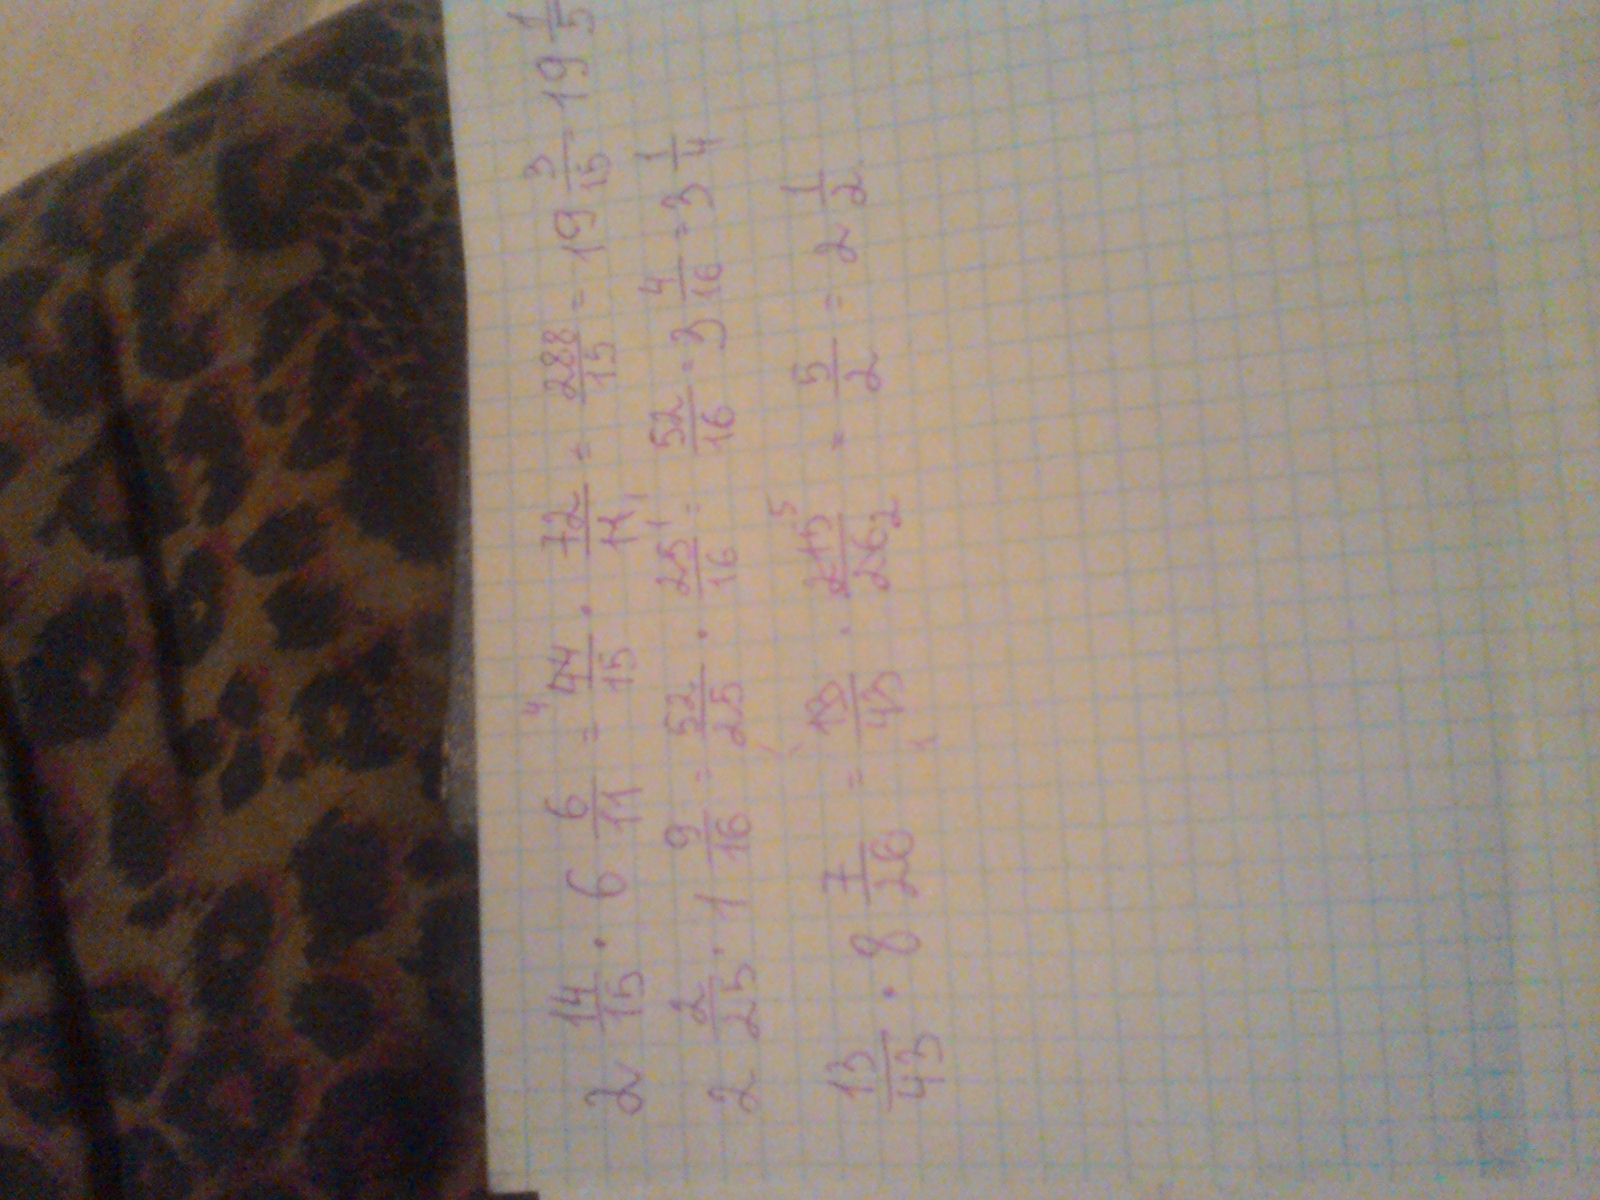 2 14/15 · 6 6/11 = 44⁴/15 · 72/11₁ = 288/15 = 19 3/15 = 19 1/5
2 2/25 · 1 9/16 = 52/25₁ · 25¹/16 = 52/16 = 3 4/16 = 3 1/4
13/43 · 8 7/26 = 13¹/43₁ · 215⁵/26₂ = 5/2 = 2 1/2